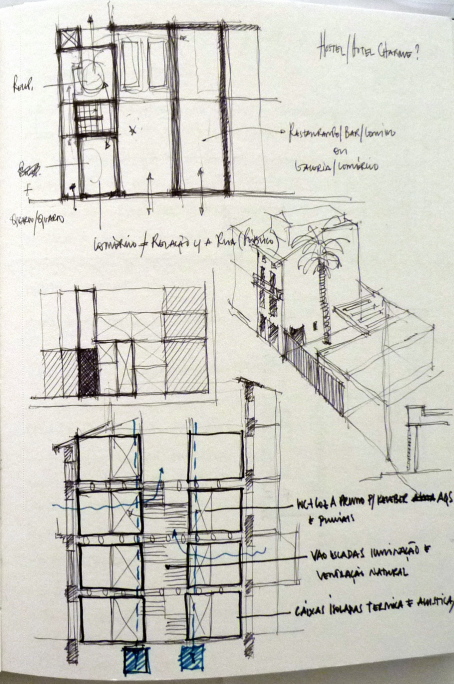 HOTEL/HOTEL CHARME?
RESTAURANTE/BAR/
OU
GALERIA/COMÉRCIO
QUARTO
COMÉRCIO → RELAÇÃO C/ A RUA (PÚBLICO)
WC+COZ A PRUMO P/ RECEBER AQS
E PLUVIAIS
VÃO ESCADAS ILUMINAÇÃO E
VENTILAÇÃO NATURAL
CAIXAS ISOLADAS TERMICA E ACUSTICA